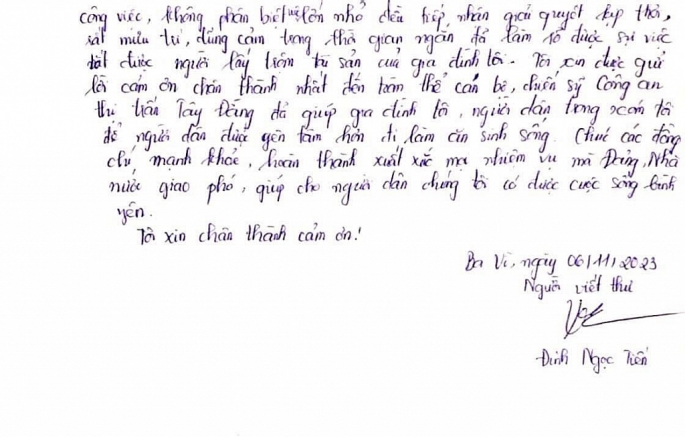 công việc, không phân biệt việc lớn nhỏ đều tiếp, nhận giải quyết kịp thời,
sát mưu trí, dũng cảm trong thời gian ngắn đã làm rõ được sự việc
bắt được người lấy trộm tài sản của gia đình tôi. Tôi xin được gửi
lời cảm ơn chân thành nhất đến toàn thể cán bộ, chiến sỹ Công an
thị trấn Tây Đằng đã giúp gia đình tôi, người dân trong xóm tôi
để người dân được yên tâm hơn đi làm ăn sinh sống. Chúc các đồng
chí mạnh khỏe, hoàn thành xuất xắc mọi nhiệm vụ mà Đảng, Nhà
nước giao phó, giúp cho người dân chúng tôi có được cuộc sống bình
yên.
Tôi xin chân thành cảm ơn!
Ba Vì, ngày 06/11/2023
Người viết thư
Đinh Ngọc Tiến